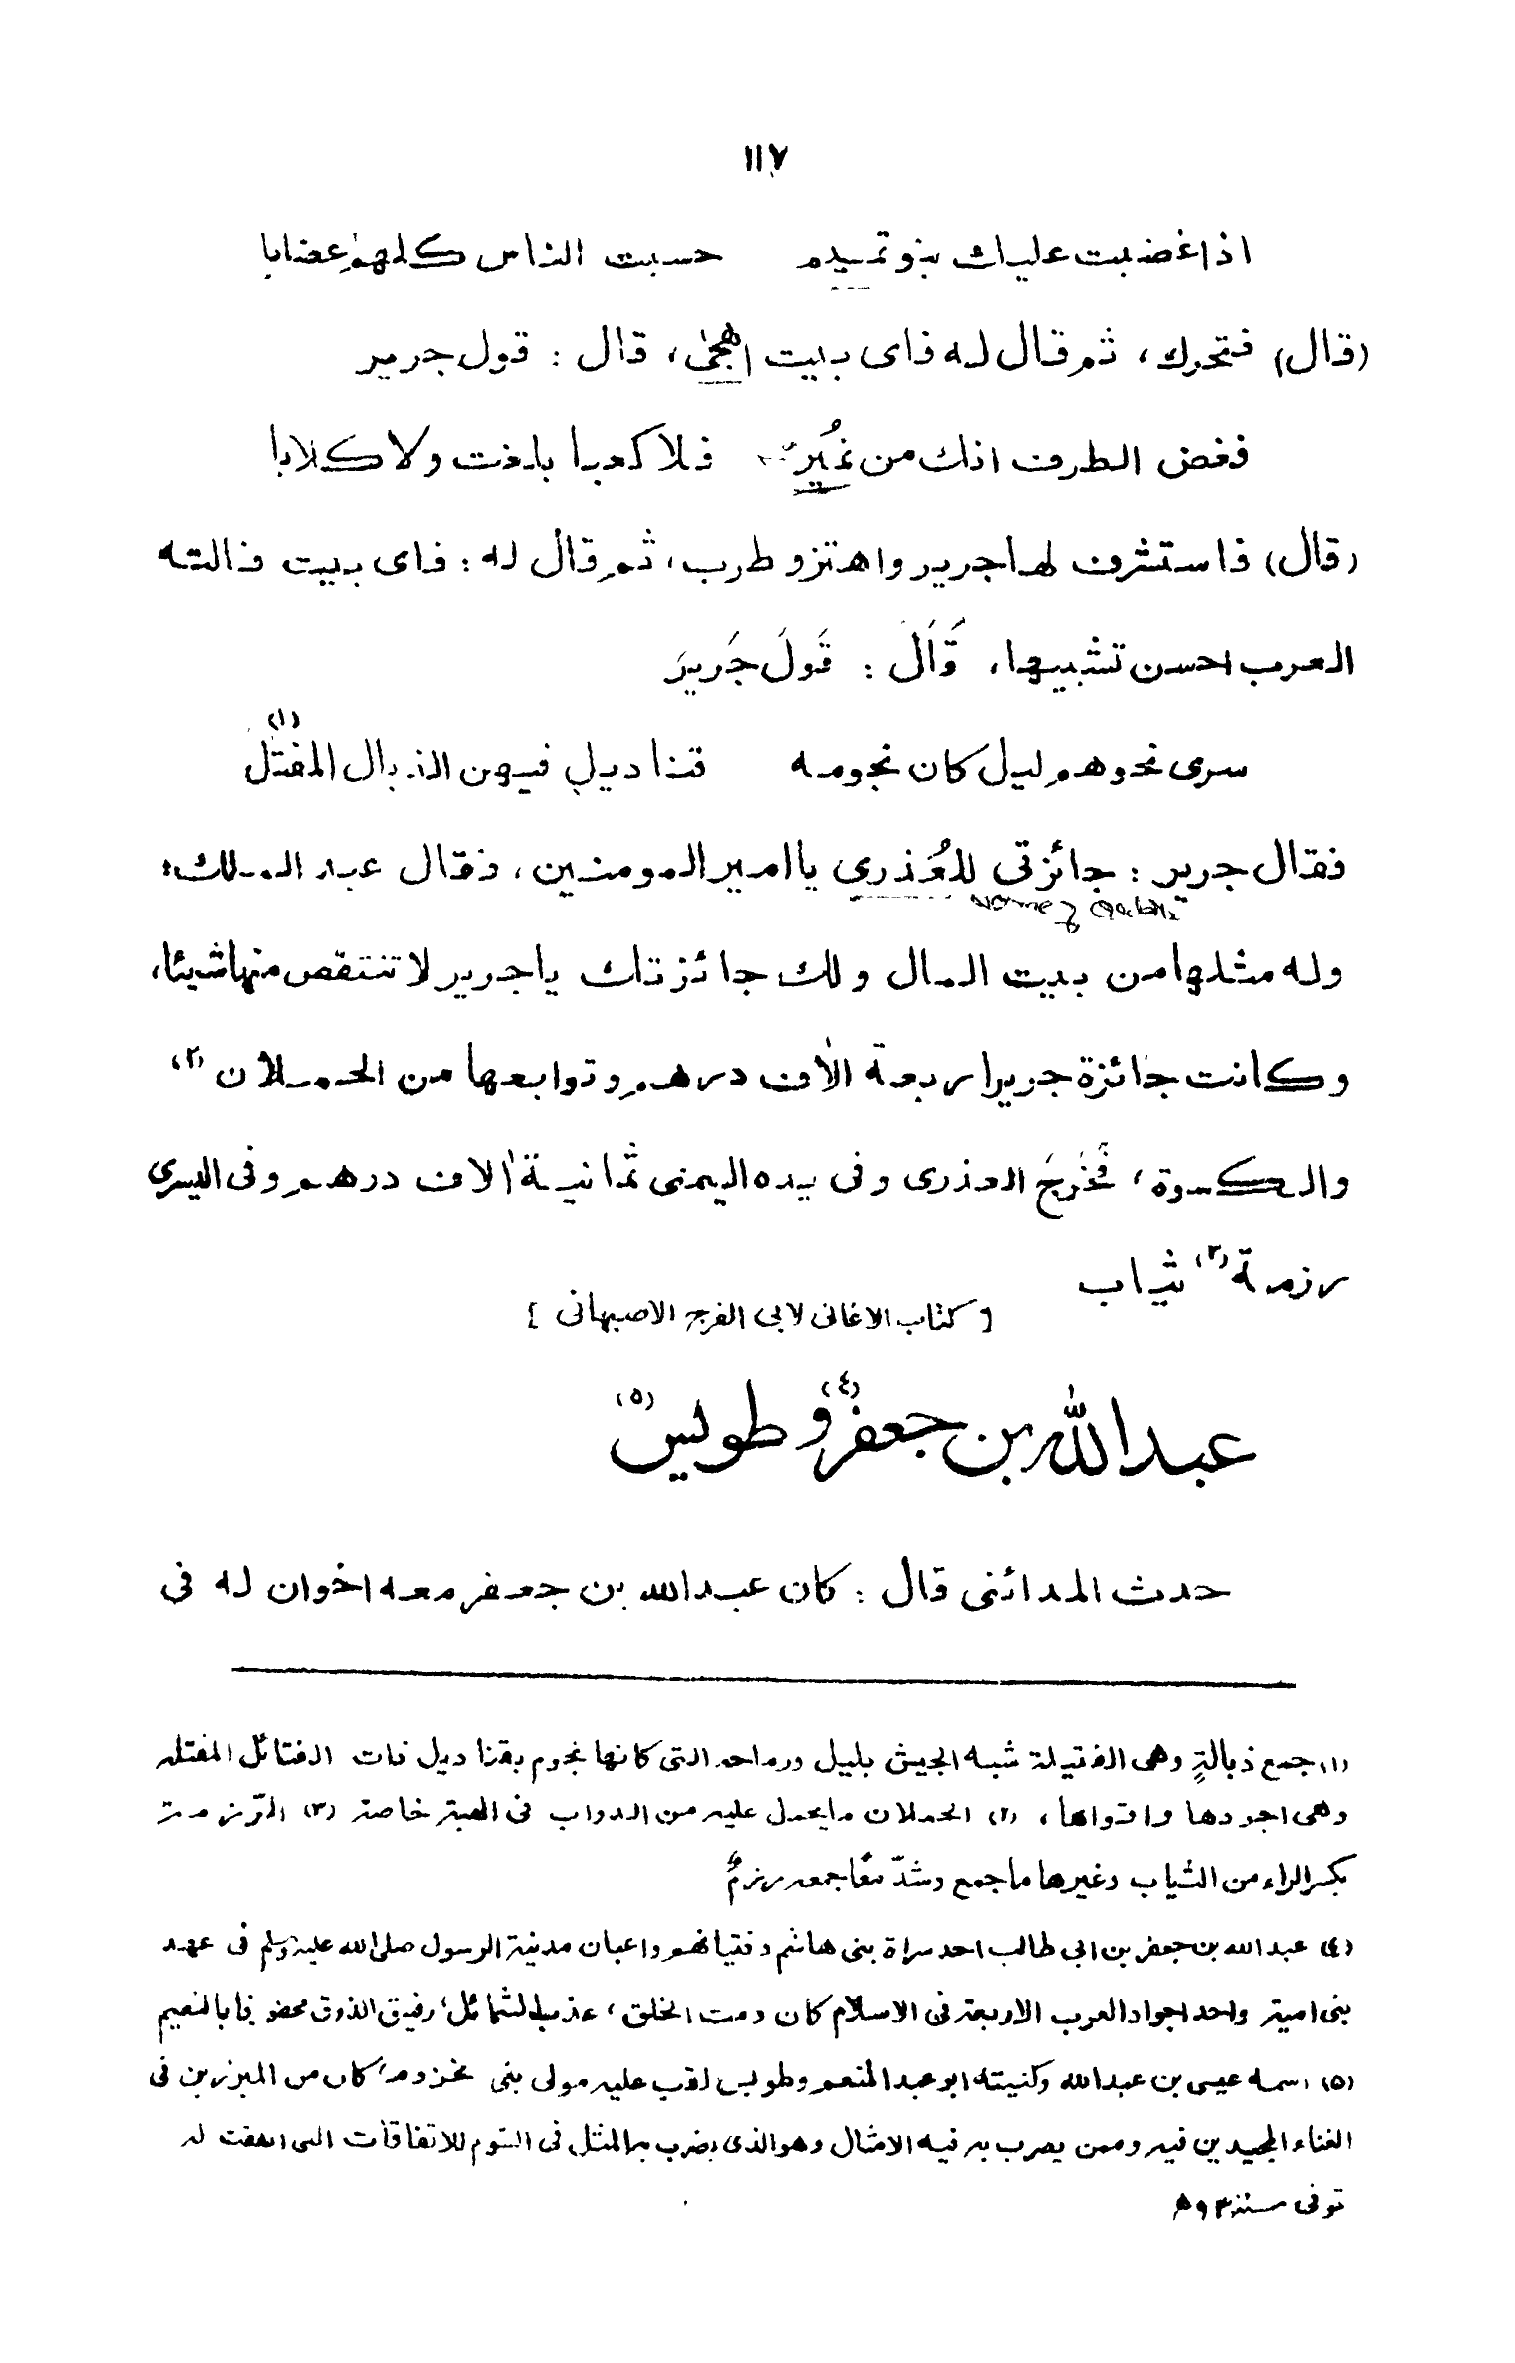 ١١٧
اذا غضبت عليك بنو تميم حسبت الناس كلهم غضابا
(قال) فتحرك، ثم قال له فاى بيت اهجىٰ، قال : قول جرير
فغض الطرف انك من نُمَير فلا كعبا بلغت ولا كلابا
(قال) فاستشرف لها جرير واهتز وطرب، ثم قال له : فاى بيت قالته
العرب احسن تشبيها، قَالَ : قَولَ جَرِيرَ
سرى نحوهم ليل كان نجومه قناديل فيهن الذبال المفتل (١)
فقال جرير : جائزتى للعُذرى يا امير المومنين، فقال عبد الملك :
Name of Qabila
وله مثلها من بيت المال ولك جائزتك يا جرير لا تنتقص منها شيئا،
وكانت جائزة جرير اربعة الاف درهم وتوابعها من الحملان (٢)
والكسوة، فَخَرَجَ العذرى وفى يده اليمنى ثمانية الاف درهم وفى اليسرى
رزمة (٣) ثياب
[كتاب الاغانى لابى الفرج الاصبهانى]
عبدالله بن جعفر (٤) وطويس (٥)
حدث المدائنى قال : كان عبدالله بن جعفر معه اخوان له فى
(١) جمع ذبالةٍ وهى الفتيلة شبه الجيش بليل ورماحه التى كانها نجوم بقناديل ذات الفتائل المفتله
وهى اجودها واقواها، (٢) الحملان ما يحمل عليه من الدواب فى الهبة خاصة (٣) الرّزمة
بكسر الراء من الثياب وغيرها ما جمع وشدّ معًا جمعه رزمٌ
(٤) عبدالله بن جعفر بن ابى طالب احد سراة بنى هاشم وفتيانهم واعيان مدينة الرسول صلى الله عليه وسلم فى عهد
بنى امية واحد اجواد العرب الاربعة فى الاسلام كان دمث الخلق، عذب الشمائل، رقيق الذوق محفوفا بالنعيم
(٥) اسمه عيسى بن عبدالله وكنيته ابو عبدالمنعم وطويس لقب عليه مولى بنى مخزوم، كان من المبرزين فى
الغناء المجيدين فيه وممن يضرب به فيه الامثال وهو الذى يضرب به المثل فى الشوم للاتفاقات التى اتفقت له
توفى سنة ٩٣ھ